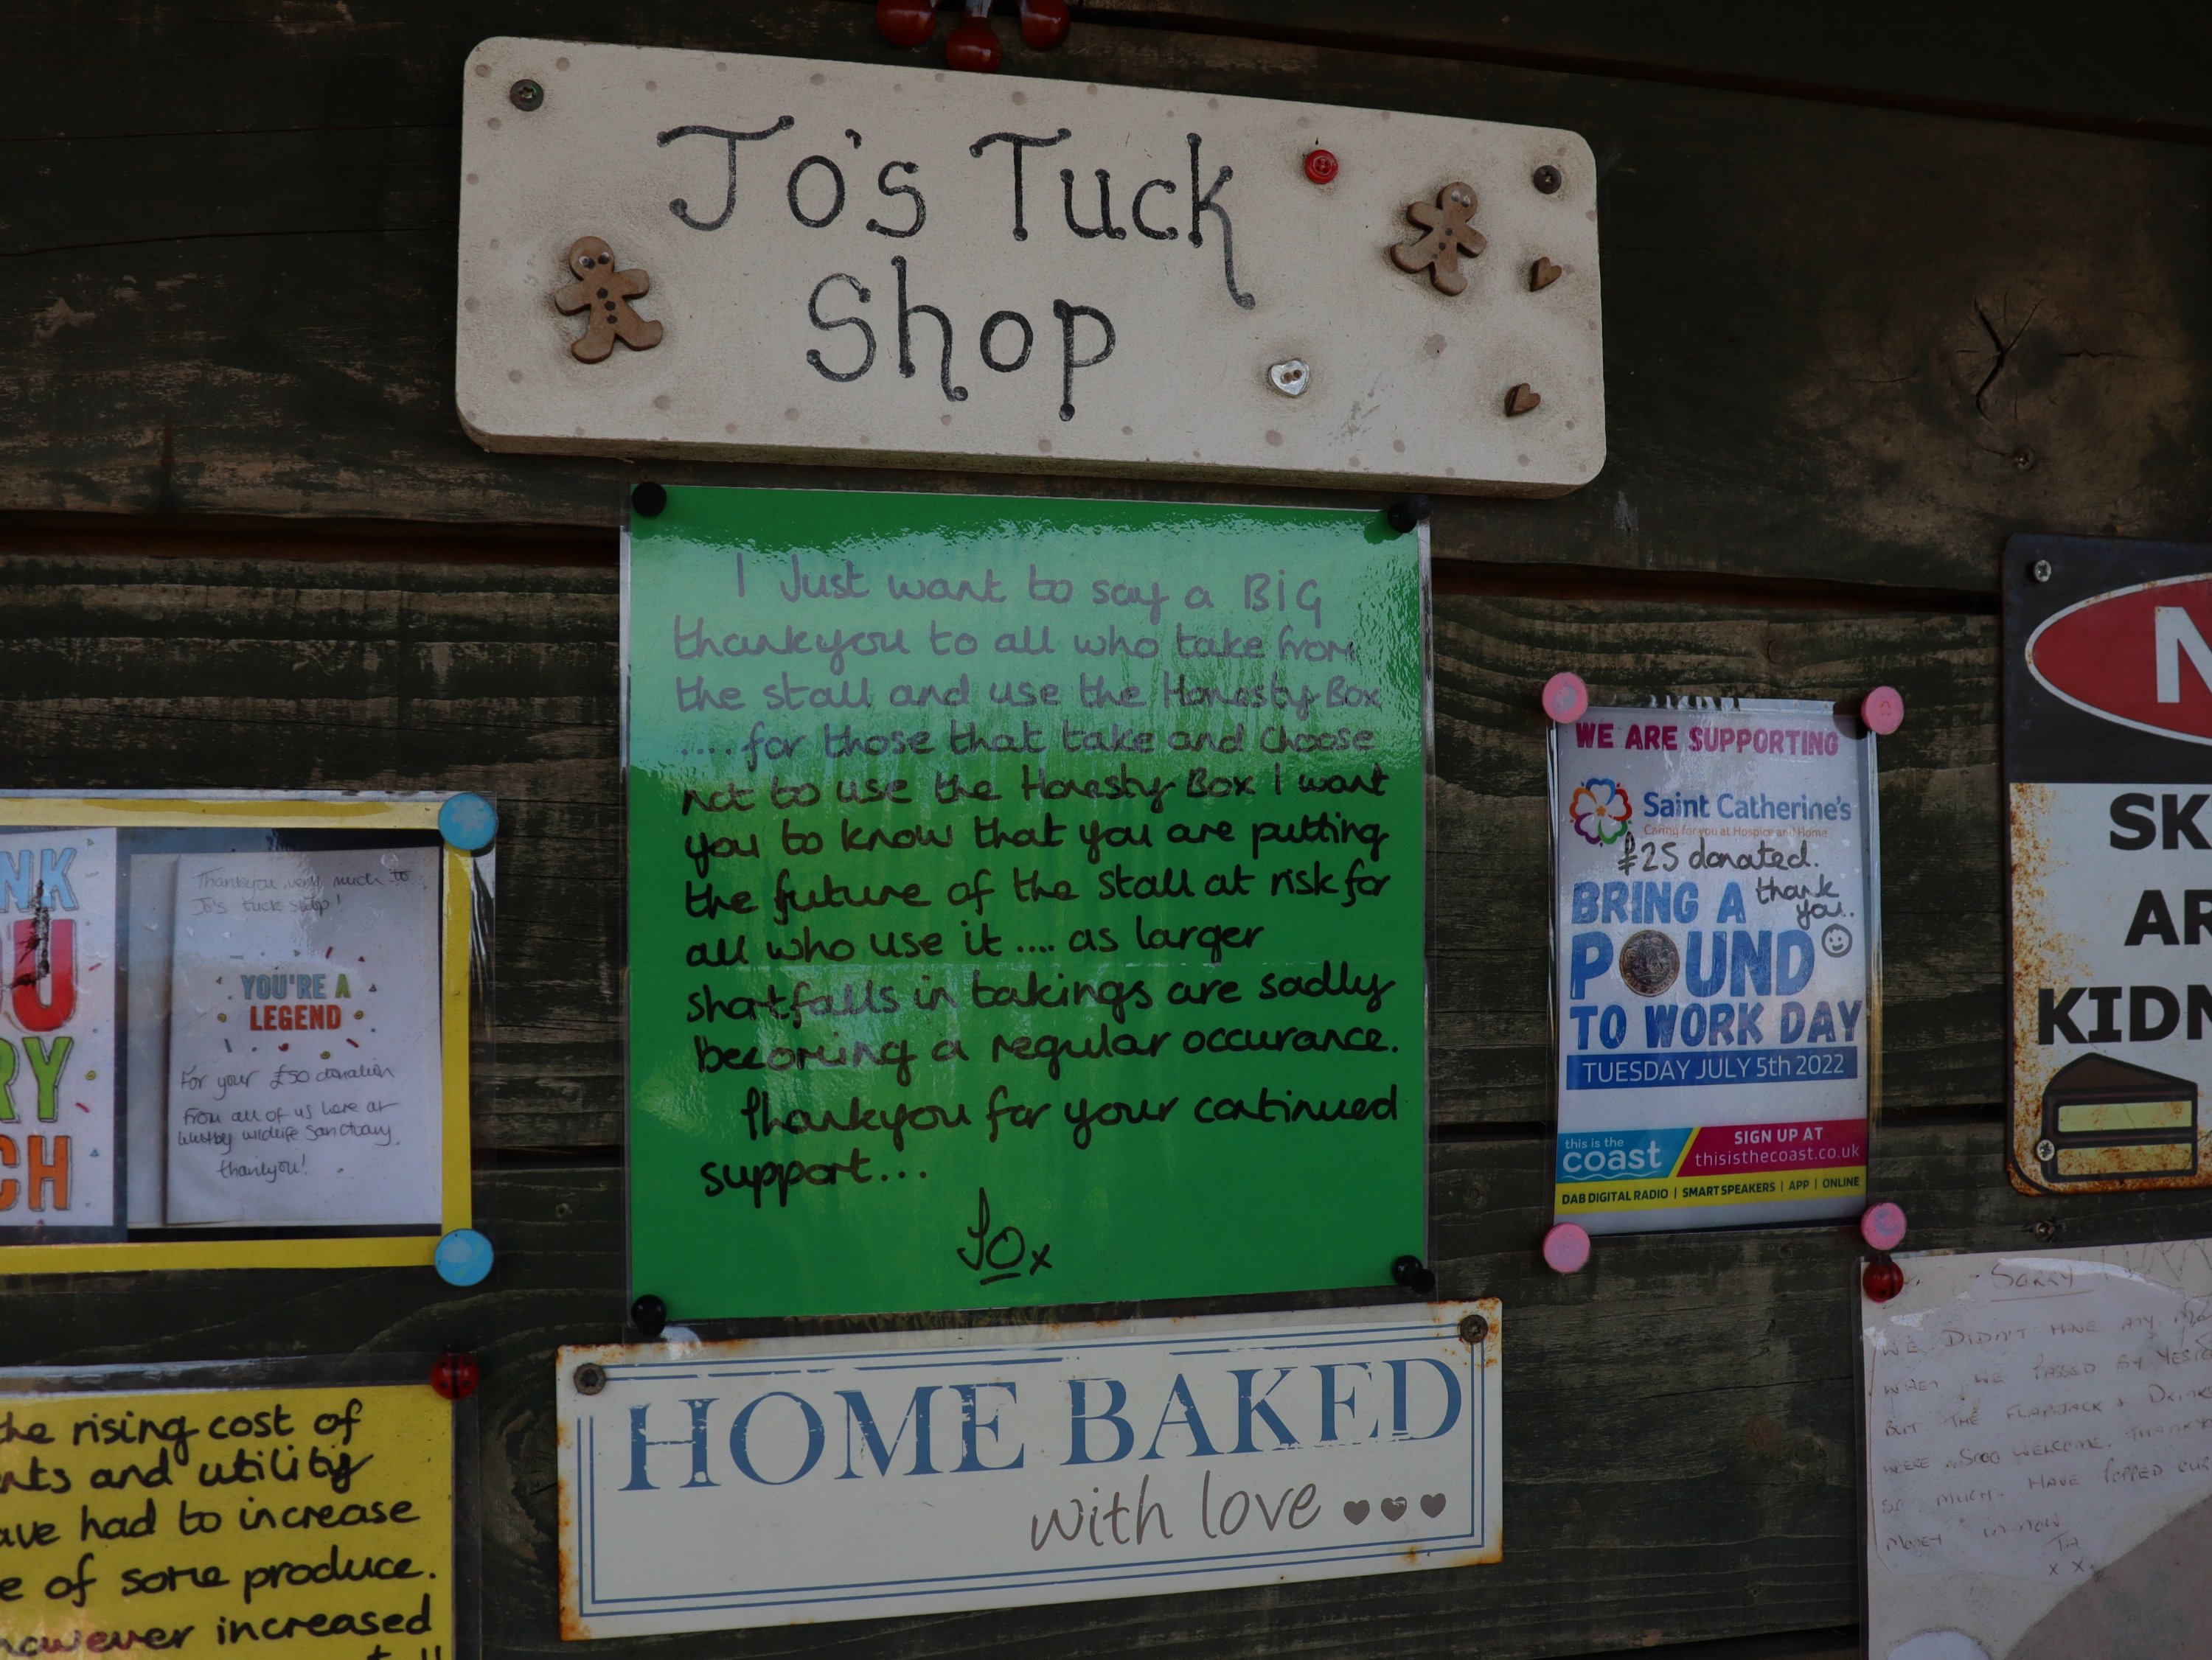 Jo's Tuck
Shop
I Just want to say a BIG
thankyou to all who take from
the stall and use the Honesty Box
....for those that take and choose
not to use the Honesty Box I want
you to know that you are putting
the future of the stall at risk for
all who use it .... as larger
shortfalls in takings are sadly
becoming a regular occurance.
Thankyou for your continued
support...
Jo x
HOME BAKED
with love
NK
OU
RY
CH
Thankyou very much to
Jo's tuck shop!
YOU'RE A
LEGEND
For your £50 donation
From all of us here at
wildlife Sanctuary,
thankyou!
the rising cost of
nts and utility
ave had to increase
e of some produce.
however increased
WE ARE SUPPORTING
Saint Catherine's
Caring for you at Hospice and Home
£25 donated.
thank
you..
BRING A
POUND
TO WORK DAY
TUESDAY JULY 5th 2022
this is the
coast
SIGN UP AT
thisisthecoast.co.uk
DAB DIGITAL RADIO | SMART SPEAKERS | APP | ONLINE
N
SK
AR
KIDN
SORRY
WE DIDN'T HAVE ANY
WHEN WE PASSED BY
BUT THE FLAPJACK & DRINK
WERE SOOO WELCOME.
SO MUCH. HAVE POPPED OUR
MONEY IN NOW
x x